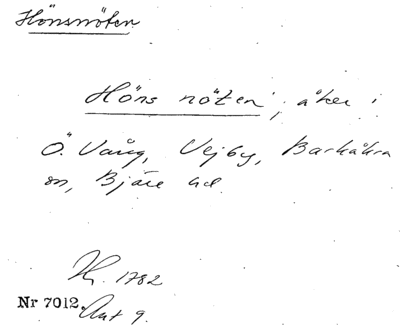 Hönsnöten
Höns nöten; åker i
Ö. Vång, Vejby, Barkåkra
sn, Bjäre hd.
H. 1782
Nr 7012. Akt 9.